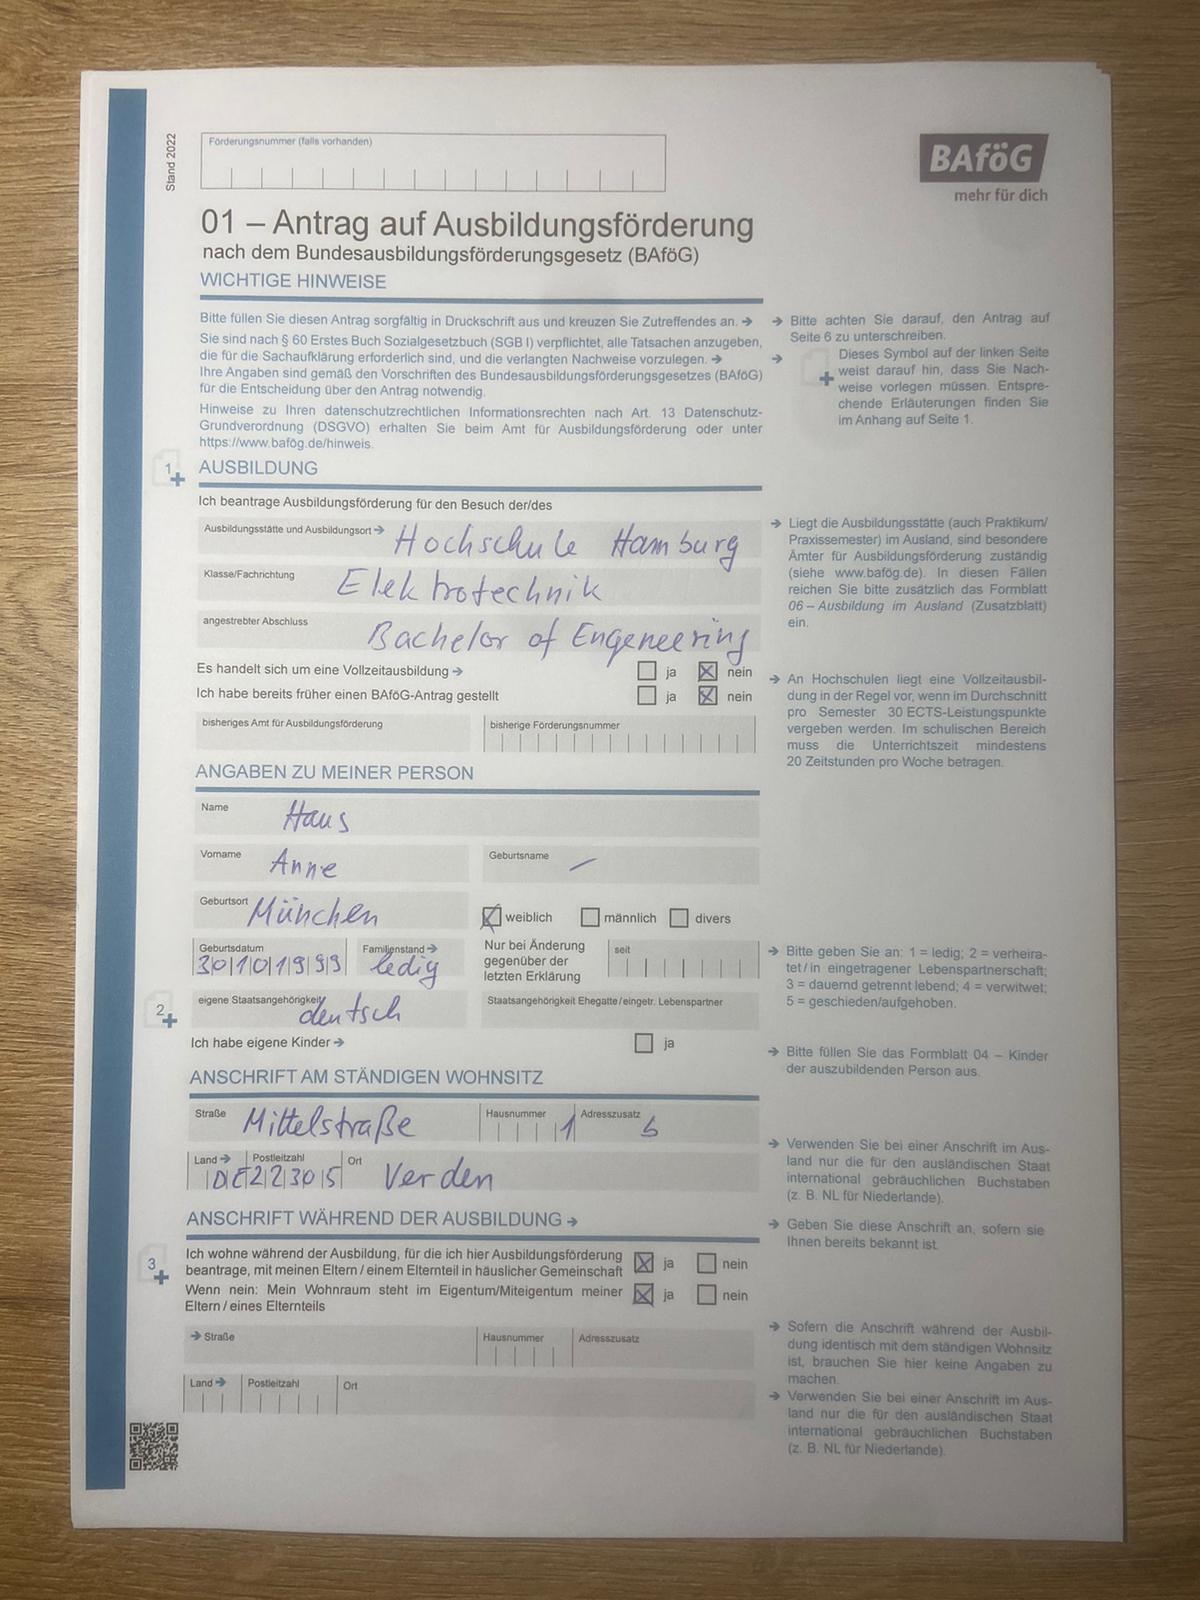 Stand 2022
Förderungsnummer (falls vorhanden)
BAföG
mehr für dich
01 – Antrag auf Ausbildungsförderung
nach dem Bundesausbildungsförderungsgesetz (BAföG)
WICHTIGE HINWEISE
Bitte füllen Sie diesen Antrag sorgfältig in Druckschrift aus und kreuzen Sie Zutreffendes an. →
Sie sind nach § 60 Erstes Buch Sozialgesetzbuch (SGB I) verpflichtet, alle Tatsachen anzugeben,
die für die Sachaufklärung erforderlich sind, und die verlangten Nachweise vorzulegen. →
Ihre Angaben sind gemäß den Vorschriften des Bundesausbildungsförderungsgesetzes (BAföG)
für die Entscheidung über den Antrag notwendig.
Hinweise zu Ihren datenschutzrechtlichen Informationsrechten nach Art. 13 Datenschutz-
Grundverordnung (DSGVO) erhalten Sie beim Amt für Ausbildungsförderung oder unter
https://www.bafög.de/hinweis.
→ Bitte achten Sie darauf, den Antrag auf
Seite 6 zu unterschreiben.
→ Dieses Symbol auf der linken Seite
weist darauf hin, dass Sie Nach-
weise vorlegen müssen. Entspre-
chende Erläuterungen finden Sie
im Anhang auf Seite 1.
1 AUSBILDUNG
Ich beantrage Ausbildungsförderung für den Besuch der/des
Ausbildungsstätte und Ausbildungsort → Hochschule Hamburg
Klasse/Fachrichtung Elektrotechnik
angestrebter Abschluss Bachelor of Engeneering
Es handelt sich um eine Vollzeitausbildung → ja nein
Ich habe bereits früher einen BAföG-Antrag gestellt ja nein
bisheriges Amt für Ausbildungsförderung bisherige Förderungsnummer
→ Liegt die Ausbildungsstätte (auch Praktikum/
Praxissemester) im Ausland, sind besondere
Ämter für Ausbildungsförderung zuständig
(siehe www.bafög.de). In diesen Fällen
reichen Sie bitte zusätzlich das Formblatt
06 – Ausbildung im Ausland (Zusatzblatt)
ein.
→ An Hochschulen liegt eine Vollzeitausbil-
dung in der Regel vor, wenn im Durchschnitt
pro Semester 30 ECTS-Leistungspunkte
vergeben werden. Im schulischen Bereich
muss die Unterrichtszeit mindestens
20 Zeitstunden pro Woche betragen.
ANGABEN ZU MEINER PERSON
Name Haus
Vorname Anne Geburtsname –
Geburtsort München weiblich männlich divers
Geburtsdatum 30101999 Familienstand → ledig
Nur bei Änderung
gegenüber der
letzten Erklärung
seit
2 eigene Staatsangehörigkeit deutsch Staatsangehörigkeit Ehegatte/eingetr. Lebenspartner
Ich habe eigene Kinder → ja
→ Bitte geben Sie an: 1 = ledig; 2 = verheira-
tet/in eingetragener Lebenspartnerschaft;
3 = dauernd getrennt lebend; 4 = verwitwet;
5 = geschieden/aufgehoben.
→ Bitte füllen Sie das Formblatt 04 – Kinder
der auszubildenden Person aus.
ANSCHRIFT AM STÄNDIGEN WOHNSITZ
Straße Mittelstraße Hausnummer 1 Adresszusatz b
Land → DE Postleitzahl 22305 Ort Verden
→ Verwenden Sie bei einer Anschrift im Aus-
land nur die für den ausländischen Staat
international gebräuchlichen Buchstaben
(z. B. NL für Niederlande).
ANSCHRIFT WÄHREND DER AUSBILDUNG →
→ Geben Sie diese Anschrift an, sofern sie
Ihnen bereits bekannt ist.
3 Ich wohne während der Ausbildung, für die ich hier Ausbildungsförderung
beantrage, mit meinen Eltern / einem Elternteil in häuslicher Gemeinschaft ja nein
Wenn nein: Mein Wohnraum steht im Eigentum/Miteigentum meiner
Eltern / eines Elternteils ja nein
→ Straße Hausnummer Adresszusatz
Land → Postleitzahl Ort
→ Sofern die Anschrift während der Ausbil-
dung identisch mit dem ständigen Wohnsitz
ist, brauchen Sie hier keine Angaben zu
machen.
→ Verwenden Sie bei einer Anschrift im Aus-
land nur die für den ausländischen Staat
international gebräuchlichen Buchstaben
(z. B. NL für Niederlande).